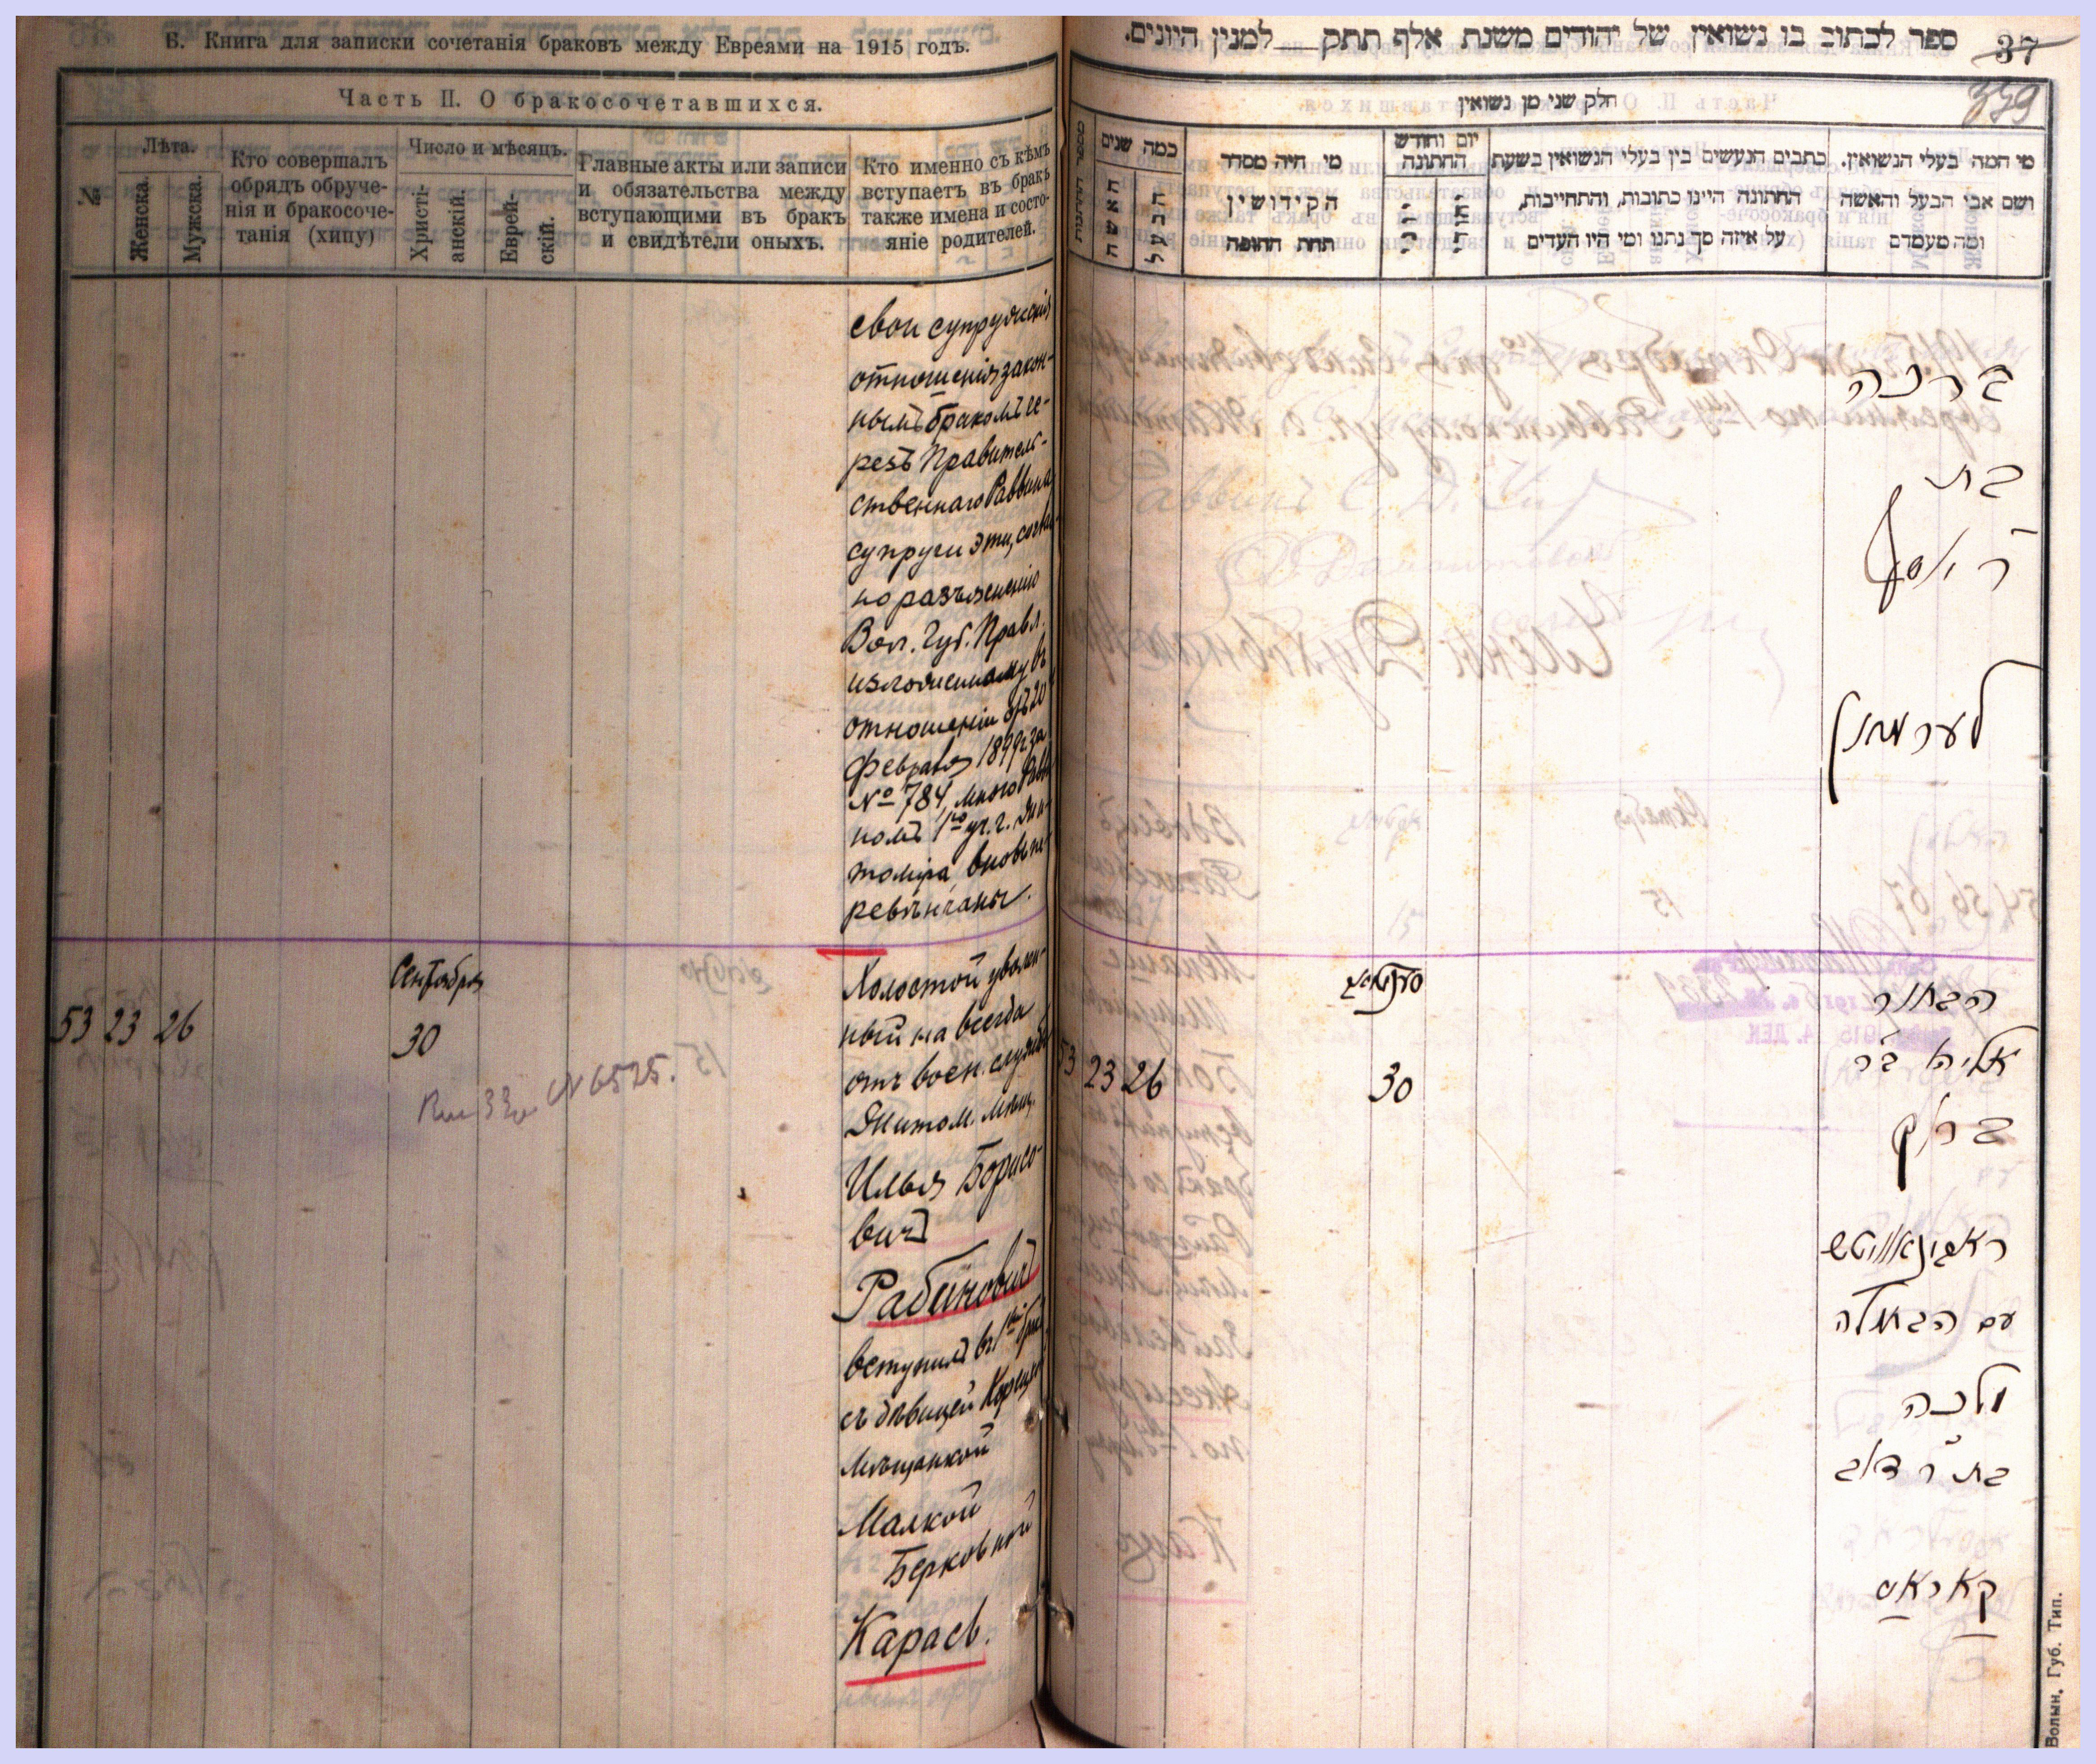 Б. Книга для записки сочетанія браковъ между Евреями на 1915 годъ.
Часть II. О бракосочетавшихся.
№
Лѣта.
Женска.
Мужска.
Кто совершалъ
обрядъ обруче-
нія и бракосоче-
танія (хипу)
Число и мѣсяцъ.
Христі-
анскій.
Еврей-
скій.
Главные акты или записи
и обязательства между
вступающими въ бракъ
и свидѣтели оныхъ.
Кто именно съ кѣмъ
вступаетъ въ бракъ
также имена и состо-
яніе родителей.
свои супружескія
отношенія закон-
нымъ бракомъ че-
резъ Правитель-
ственнаго Раввина
супруги эти, соглас-
но разъясненію
Вол. Губ. Правл.
изложенному въ
отношеніи отъ 20
февраля 1899 г. за
№ 784, мною Равви-
номъ 1го уч. г. Жи-
томіра, вновь пе-
ревѣнчаны.
53 23 26
Сентября
30
N 6525.
Холостой уволен-
ный на всегда
отъ воен. службы
Житом. мѣщ.
Илья Борисо-
вичъ
Рабиновичъ
вступилъ въ 1й бракъ
съ дѣвицей Корецкой
мѣщанкой
Малкой
Берковной
Карась.
ספר לכתוב בו נשואין של יהודים משנת אלף תתק למנין היונים.
37
359
חלק שני מן נשואין
כמה שנים
האשה
הבעל
מי היה מסדר
הקידושין
תחת החופה
יום וחודש
החתונה
יוני
יהודי
כתבים הנעשים בין בעלי הנשואין בשעת
החתונה היינו כתובות, והתחייבות,
על איזה סך נתנו ומי היו העדים
מי המה בעלי הנשואין.
ושם אבי הבעל והאשה
ומה מעמדם
ברכה
בת
ר יוסף
לערמאן
53 23 26
סענטיאב
30
הבחור
אליהו ב״ר
ברוך
ראבינאוויטש
עם הבתולה
מלכה
בת ר׳ דוב
קאראס
Волын. Губ. Тип.